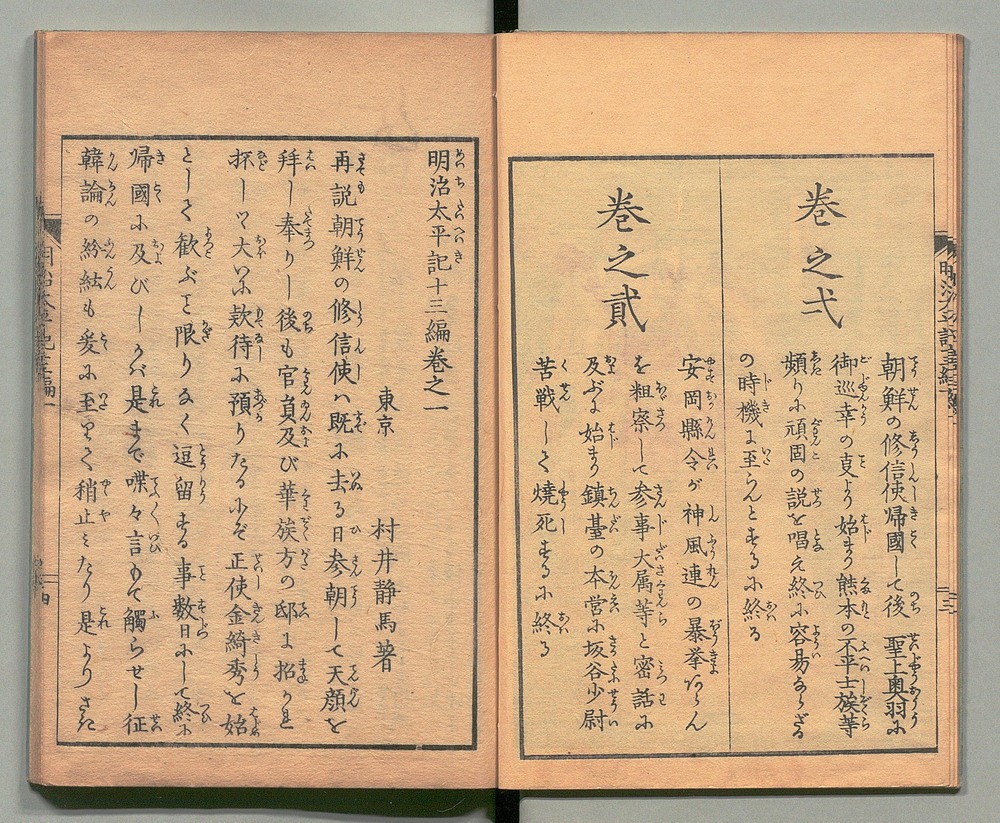 巻之弌
朝鮮の修信使帰國して後 聖上奥羽に
御巡幸の事より始まり熊本の不平士族等
頻りに頑固の説を唱え終に容易ならざる
の時機に至らんとするに終る
巻之貳
安岡縣令が神風連の暴挙あらん
を粗察して参事大属等と密話に
及ぶに始まり鎮臺の本営に坂谷少尉
苦戦して燒死するに終る
明治太平記十三編巻之一
東京 村井静馬著
再説朝鮮の修信使ハ既に去る日参朝して天顔を
拜し奉りし後も官員及び華族方の邸に招かれ
抔して大いに欵待に預りたるにぞ正使金綺秀を始
として歓ぶこと限りなく逗留する事數日にして終に
帰國に及びしかバ是まで喋々言もて觸らせし征
韓論の紛紜も爰に至りて稍止みたり是よりさき